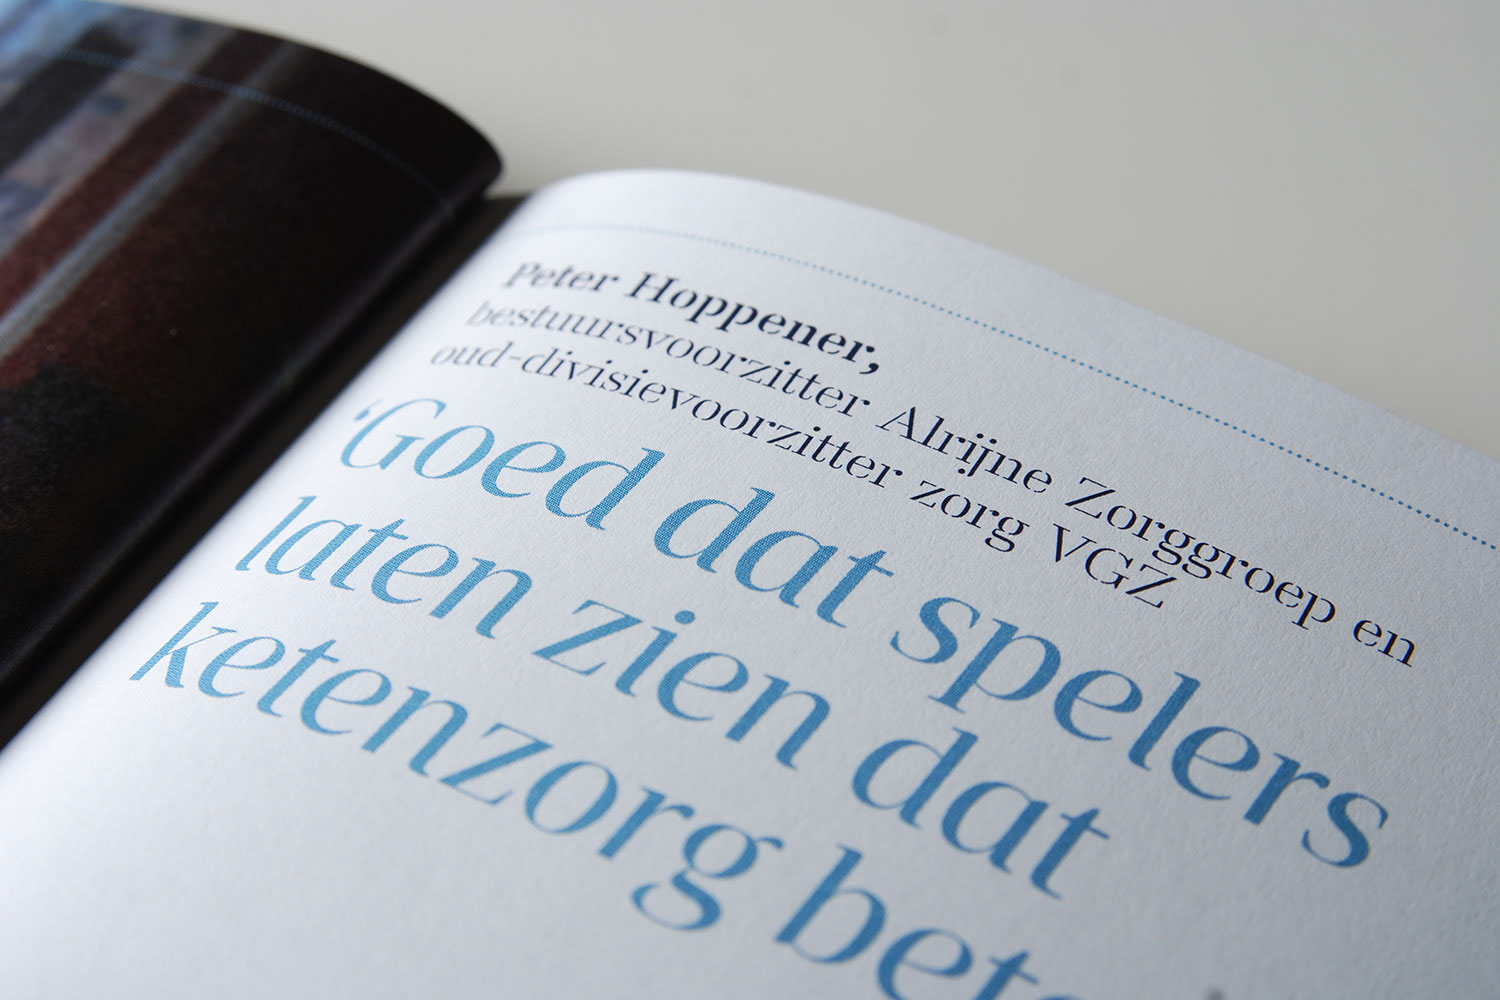 Peter Hoppener,
bestuursvoorzitter Alrijne Zorggroep en
oud-divisievoorzitter zorg VGZ
‘Goed dat spelers
laten zien dat
ketenzorg